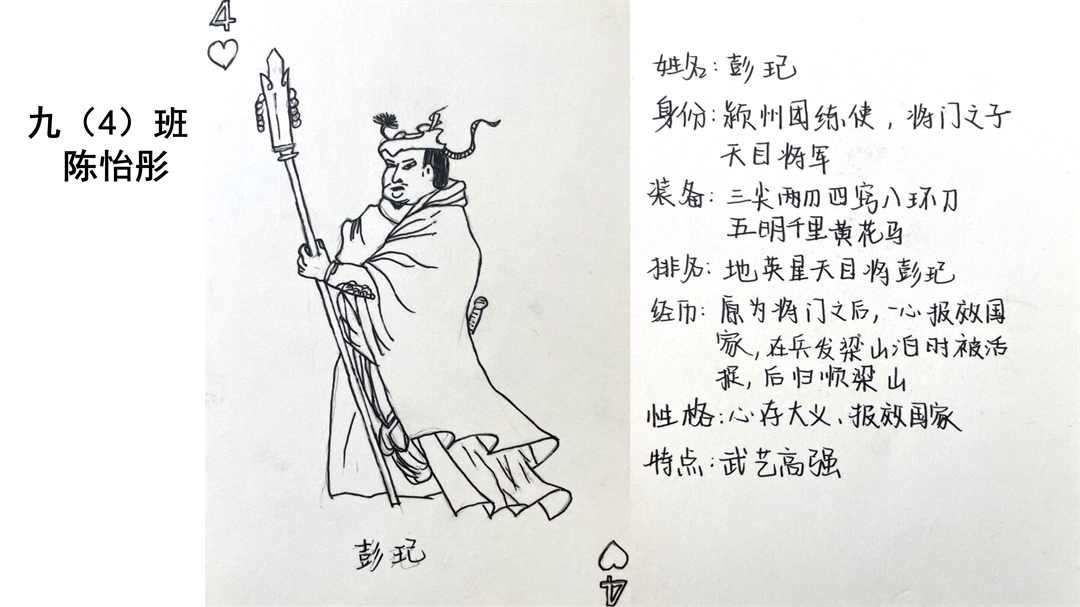 九（4）班
陈怡彤
4
彭玘
4
姓名：彭玘
身份：颍州团练使，将门之子
天目将军
装备：三尖两刃四窍八环刀
五明千里黄花马
排名：地英星天目将彭玘
经历：原为将门之后，一心报效国
家，在兵发梁山泊时被活
捉，后归顺梁山
性格：心存大义、报效国家
特点：武艺高强